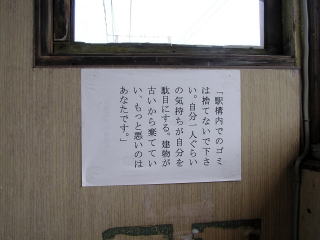 「駅構内でのゴミ
は捨てないで下さ
い。自分一人ぐらい
の気持ちが自分を
駄目にする。建物が
古いから棄ててい
い、もっと悪いのは
あなたです。」